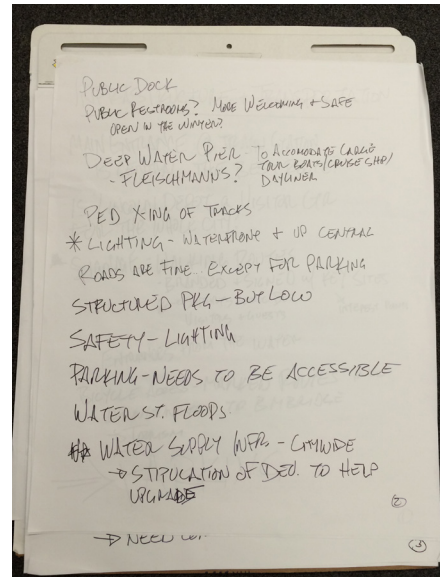 PUBLIC DOCK
PUBLIC RESTROOMS? MORE WELCOMING + SAFE
OPEN IN THE WINTER?
DEEP WATER PIER - TO ACCOMODATE LARGE
TOUR BOATS/CRUISE SHIP/
- FLEISCHMANNS? DAYLINER
PED XING OF TRACKS
* LIGHTING - WATERFRONT + UP CENTRAL
ROADS ARE FINE EXCEPT FOR PARKING
STRUCTURED PKG - BUT LOW
SAFETY - LIGHTING
PARKING - NEEDS TO BE ACCESSIBLE
WATER ST. FLOODS.
WATER SUPPLY INFR. - CITYWIDE
→ STIPULATION OF DEV. TO HELP
UPGRADE
2
→ NEED
3